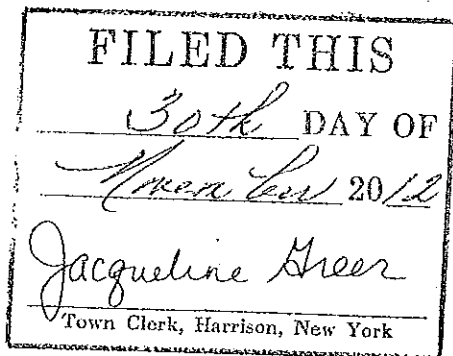 FILED THIS
30th DAY OF
November 2012
Jacqueline Greer
Town Clerk, Harrison, New York